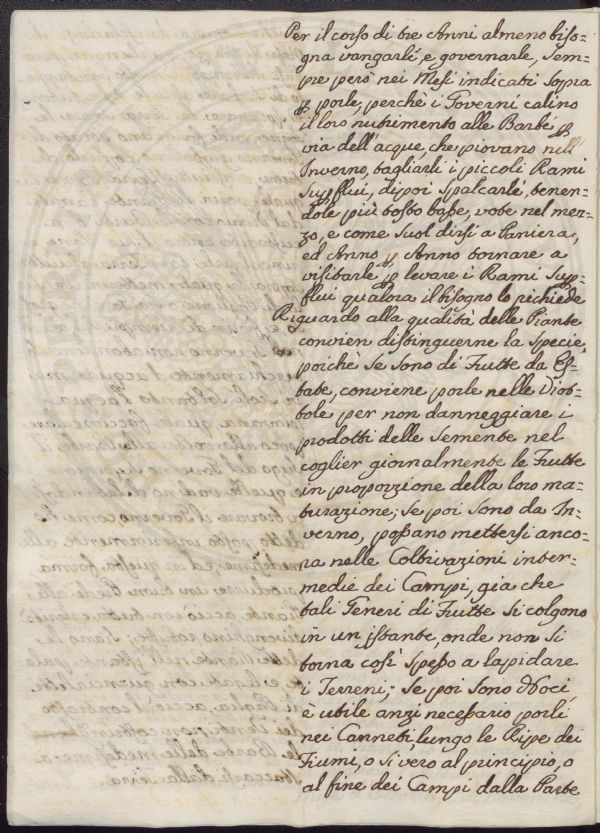 Per il corso di tre Anni almeno biso=
gna vangarli, e governarle, Sem=
pre però nei Mesi indicati Sopra
porle, perchè i Governi calino
il loro nutrimento alle Barbe
via dell'acque, che piovano nell'
Inverno, tagliarli i piccoli Rami
Supflui, di poi Spalcarle, tenen=
dole più tosto basse, vote nel mez=
zo, e come Suol dirsi a Paniera,
ed Anno p Anno tornare a
visitarle p levare i Rami Sup=
flui qualora il bisogno lo richiede
Riguardo alla qualità delle Piante
convien distinguerne la Specie,
poichè Se Sono di Frutte da Es=
tate, conviene porle nelle Viot=
tole per non danneggiare i
prodotti delle Semente nel
coglier giornalmente le Frutte
in proporzione della loro ma=
turazione; Se poi Sono da In=
verno, possano mettersi anco=
ra nelle Coltivazioni inter=
medie dei Campi, gia che
tali Generi di Frutte Si colgono
in un istante, onde non Si
torna così Spesso a lapidare
i Terreni; Se poi Sono Noci,
è utile anzi necessario porli
nei Canneti, lungo le Ripe dei
Fiumi, o Si vero al principio, o
al fine dei Campi dalla Parte